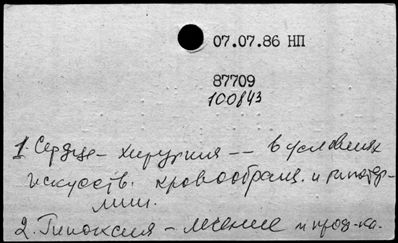 07.07.86 НП
87709
100843
1. Сердце - хирургия -- в условиях
искусств. кровообращ. и гипотер-
мии.
2. Гипоксия - лечение и проф-ка.